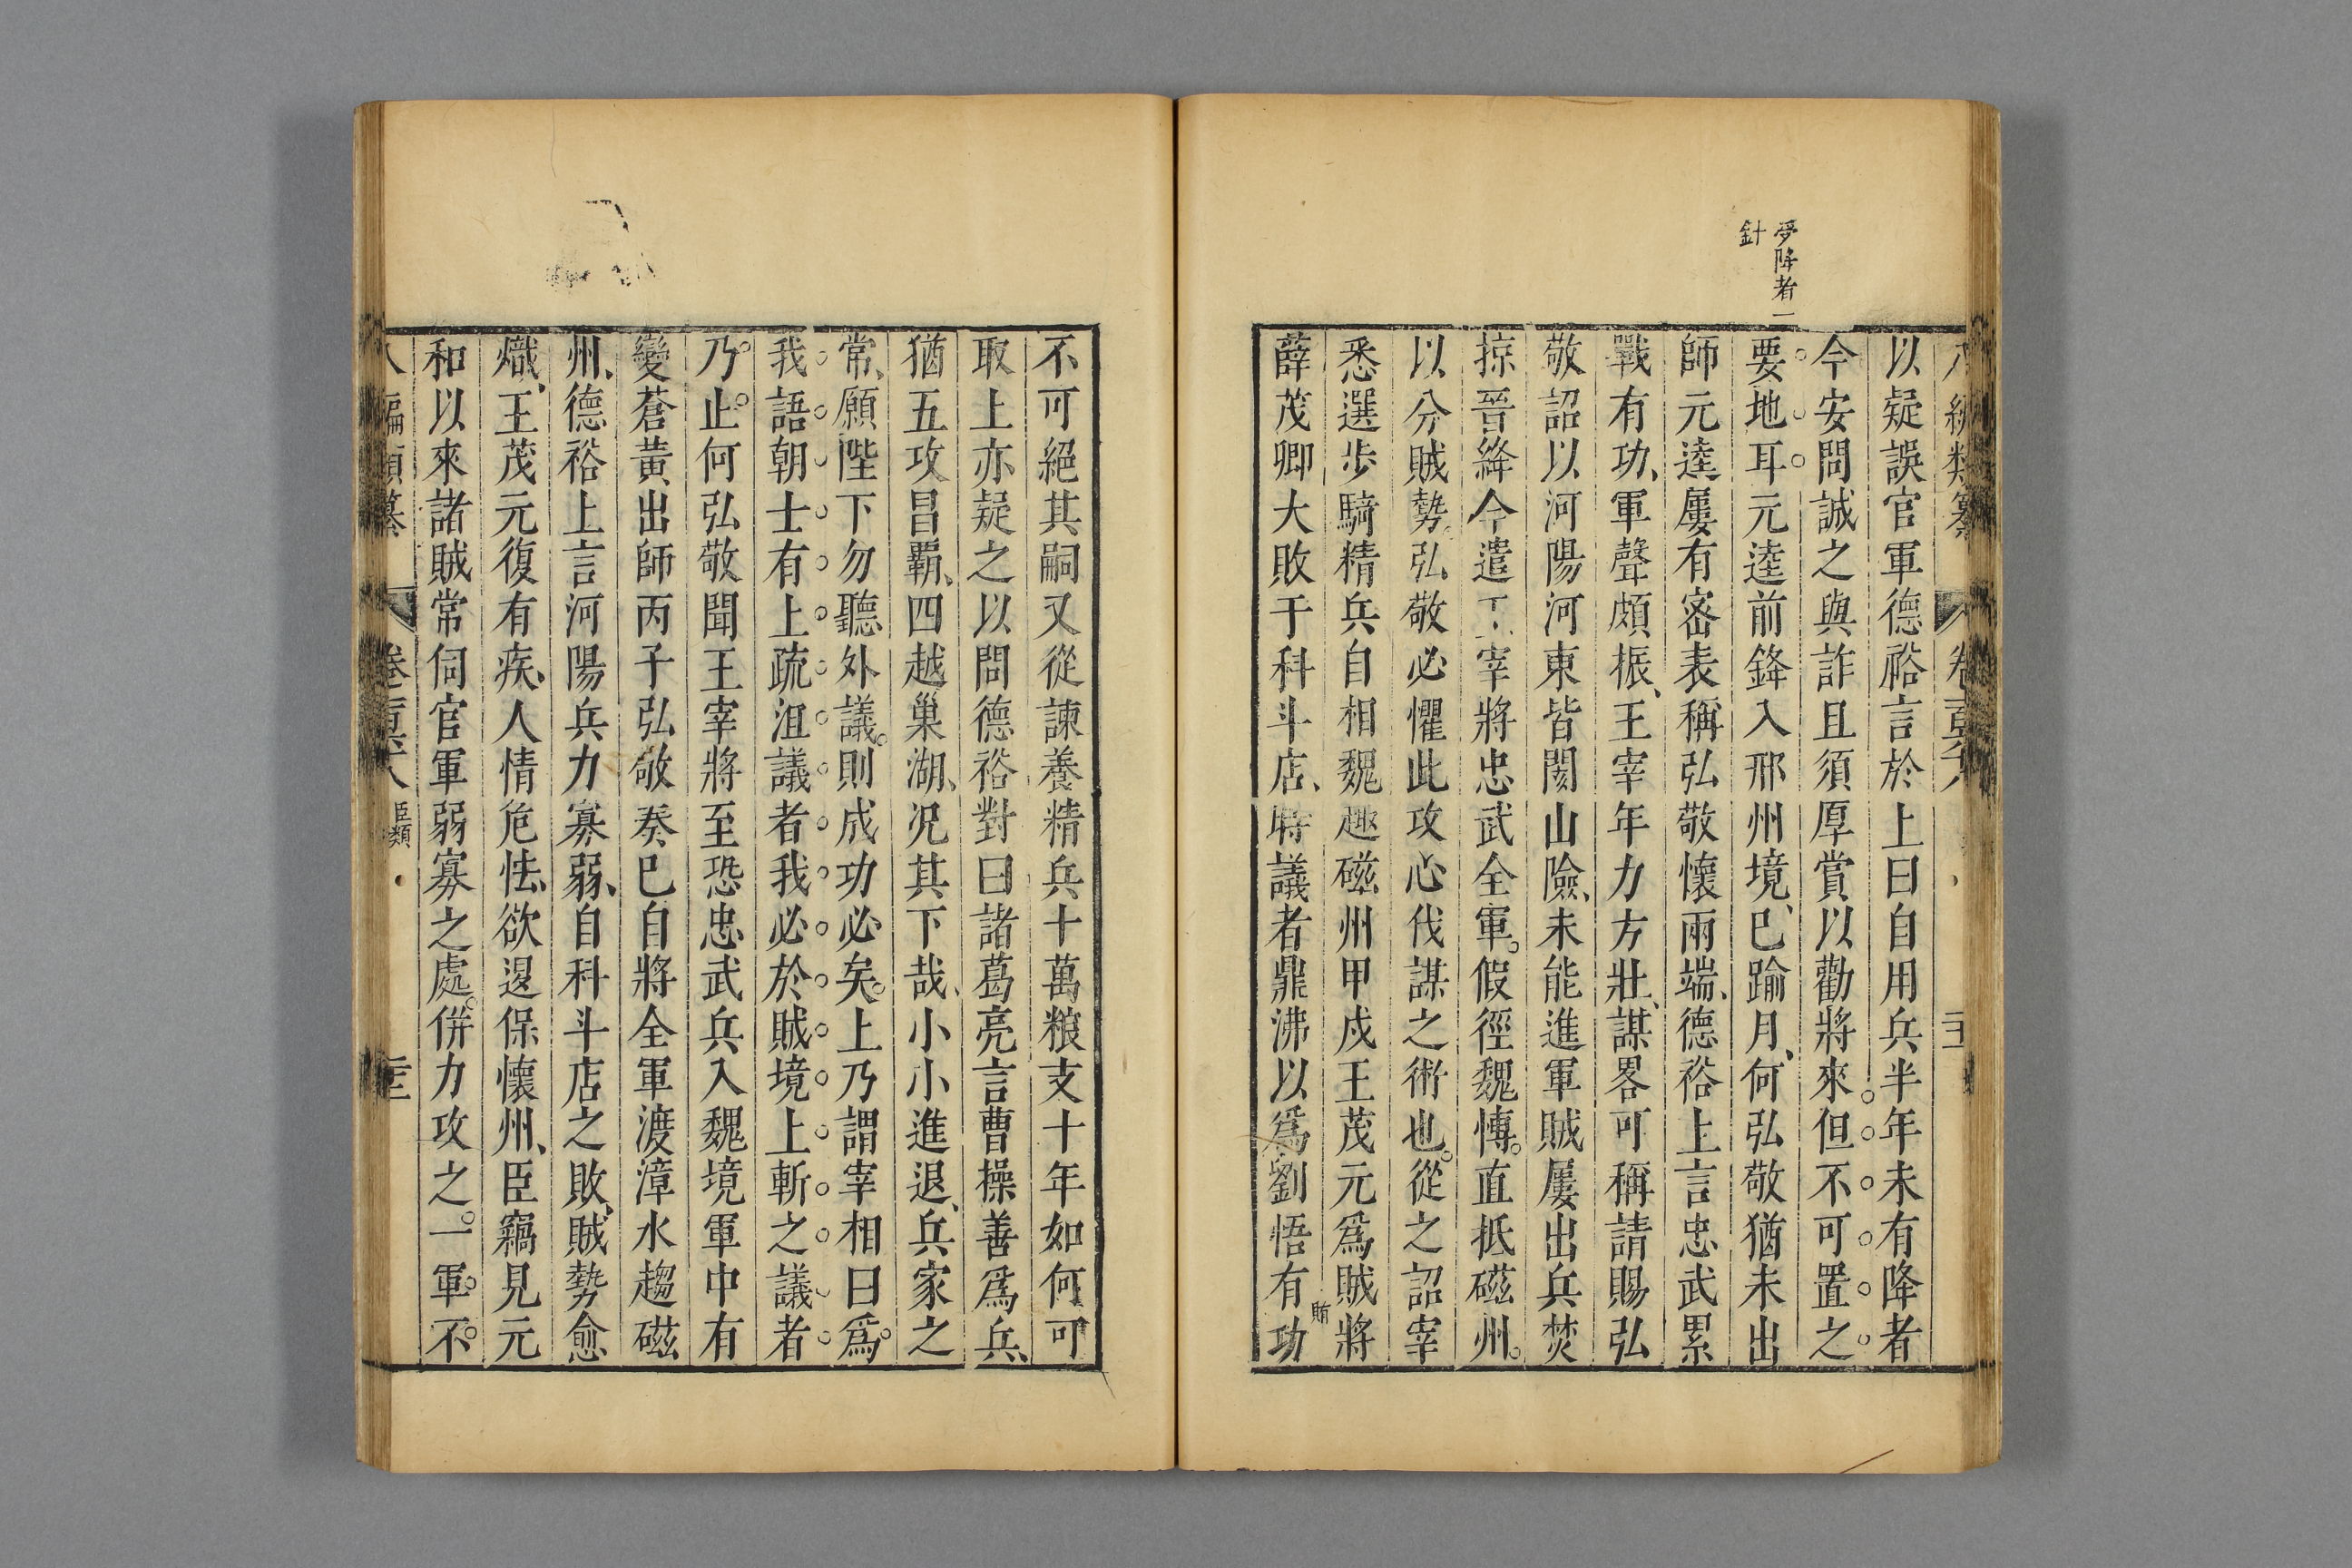 受降者一
針
八編類纂 卷一百六十八
以疑誤官軍德裕言於上曰自用兵半年未有降者
今安問誠之與詐且須厚賞以勸將來但不可置之
要地耳元逵前鋒入邢州境已踰月何弘敬猶未出
師元逵屢有密表稱弘敬懷兩端德裕上言忠武累
戰有功軍聲頗振王宰年力方壯謀畧可稱請賜弘
敬詔以河陽河東皆閡山險未能進軍賊屢出兵焚
掠晉絳今遣王宰將忠武全軍假徑魏博直抵磁州
以分賊勢弘敬必懼此攻心伐謀之術也從之詔宰
悉選步騎精兵自相魏趣磁州甲戌王茂元爲賊將
薛茂卿大敗于科斗店時議者鼎沸以爲劉悟有功
不可絕其嗣又從諫養精兵十萬粮支十年如何可
取上亦疑之以問德裕對曰諸葛亮言曹操善爲兵
猶五攻昌霸四越巢湖况其下哉小小進退兵家之
常願陛下勿聽外議則成功必矣上乃謂宰相曰爲
我語朝士有上疏沮議者我必於賊境上斬之議者
乃止何弘敬聞王宰將至恐忠武兵入魏境軍中有
變蒼黃出師丙子弘敬奏已自將全軍渡漳水趨磁
州德裕上言河陽兵力寡弱自科斗店之敗賊勢愈
熾王茂元復有疾人情危怯欲退保懷州臣竊見元
和以來諸賊常伺官軍弱寡之處併力攻之一軍不
八編類纂 卷一百六十八 臣類